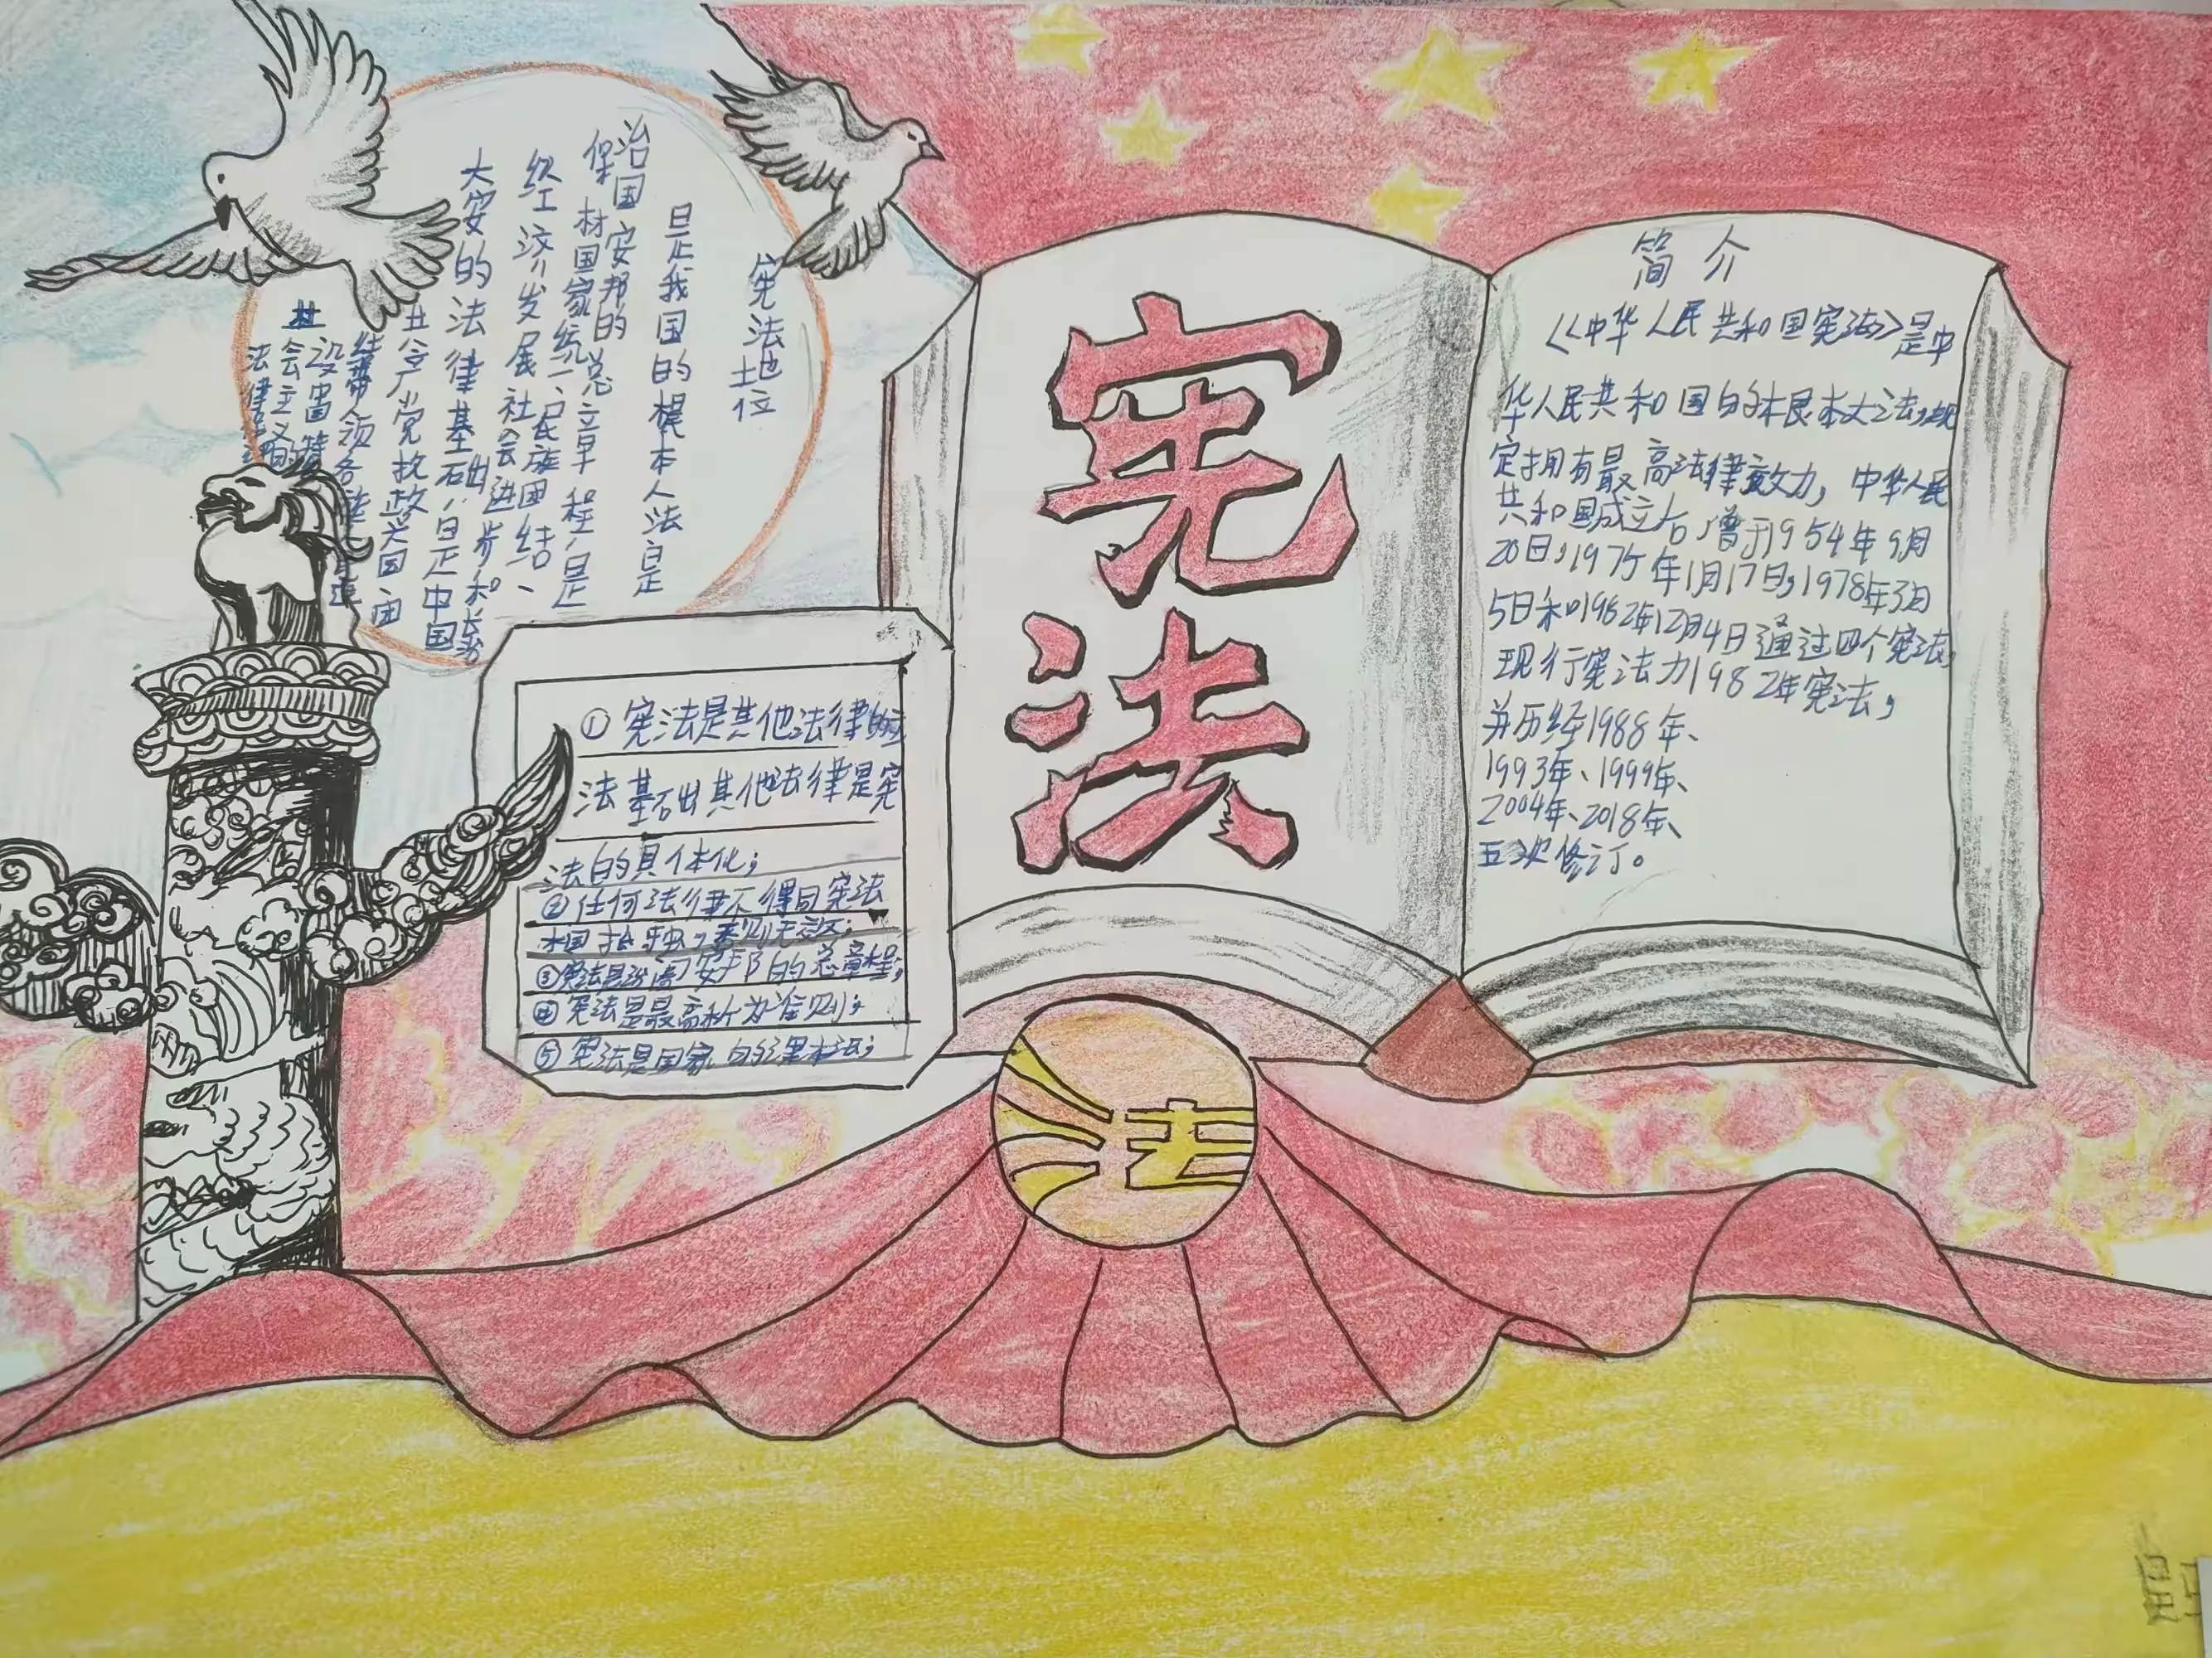 宪法地位
是我国的根本人法是
治国安邦的总章程，是
保材国家统一、民族团结、
经济发展社会进步和长治
大安的法律基础，是中国
共产党执政兴国、团
社会主义
法律
宪法
简介
《中华人民共和国宪法》是中
华人民共和国的根本大法，规
定拥有最高法律效力，中华人民
共和国成立后，曾于1954年9月
20日，1975年1月17日，1978年3月
5日和1982年12月4日通过四个宪法，
现行宪法为1982年宪法，
并历经1988年、
1993年、1999年、
2004年、2018年、
五次修订。
①宪法是其他法律的立
法基础其他法律是宪
法的具体化；
②任何法律不得同宪法
相抵触，否则无效；
③宪法是治国安邦的总章程；
④宪法是最高行为准则；
⑤宪法是国家的根本法；
法